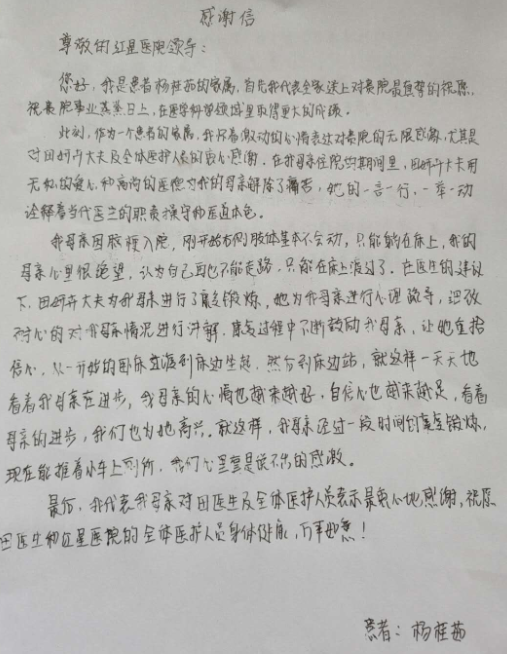 感谢信
尊敬的红星医院领导：
您好，我是患者杨桂茹的家属，首先我代表全家送上对贵院最真挚的祝愿，
祝贵院事业蒸蒸日上，在医学科学领域里取得更大的成绩。
此刻，作为一个患者的家属，我怀着激动的心情表达对贵院的无限感激，尤其是
对田妍卉大夫及全体医护人员的衷心感谢。在我母亲住院期间里，田妍卉大夫用
无私的爱心和高尚的医德为我的母亲解除了痛苦，她的一言一行，一举一动
诠释着当代医生的职责操守和医道本色。
我母亲因脑梗入院，刚开始右侧肢体基本不会动，只能躺在床上，我的
母亲心里很绝望，认为自己再也不能走路，只能在床上渡过了。在医生的建议
下，田妍卉大夫为我母亲进行了康复锻炼，她为我母亲进行心理疏导，
耐心的对我母亲情况进行讲解，康复过程中不断鼓励我母亲，让她重拾
信心，从一开始的卧床到床边坐起，然后到床边站，就这样一天天地
看着我母亲在进步，我母亲的心情也越来越好，自信心也越来越足，看着
母亲的进步，我们也为她高兴。就这样，我母亲经过一段时间的康复锻炼，
现在能推着小车上厕所，我们心里是说不出的感激。
最后，我代表我母亲对田医生及全体医护人员表示最衷心地感谢，祝愿
田医生和红星医院的全体医护人员身体健康，万事如意！
患者：杨桂茹